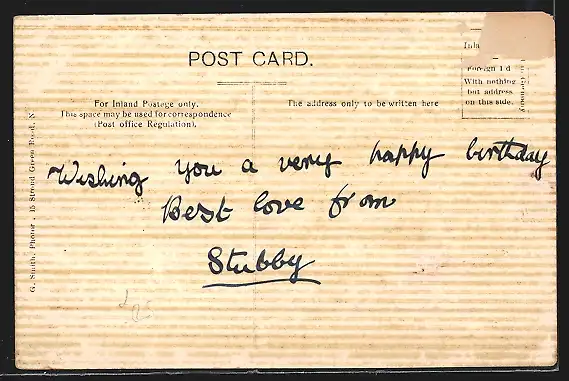 POST CARD.
For Inland Postage only.
This space may be used for correspondence
(Post office Regulation).
The address only to be written here
Inla
Foreign 1 d
With nothing
but address
on this side.
G. Smith, Photo , 15 Stroud Green Road, N.
Wishing you a very happy birthday
Best love from
Stubby